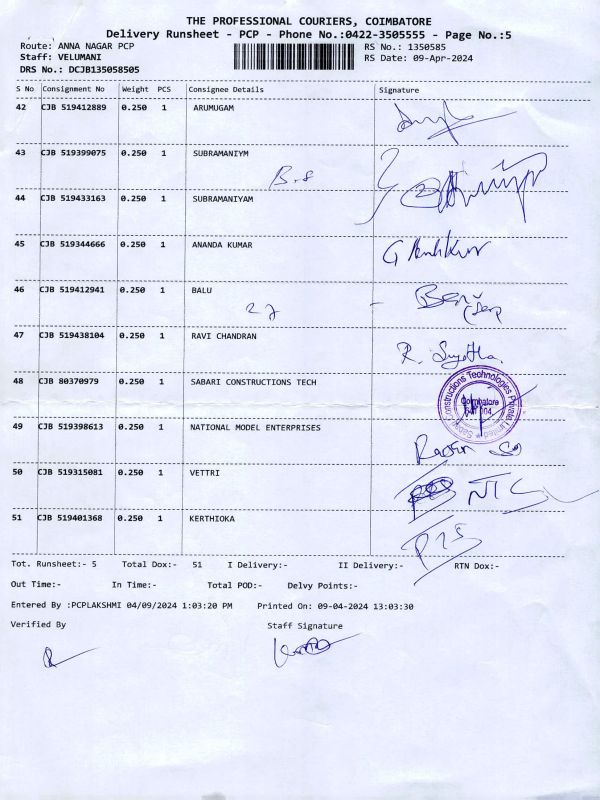 THE PROFESSIONAL COURIERS, COIMBATORE
Delivery Runsheet - PCP - Phone No.:0422-3505555 - Page No.:5
Route: ANNA NAGAR PCP RS No.: 1350585
Staff: VELUMANI RS Date: 09-Apr-2024
DRS No.: DCJB135058505
S No Consignment No Weight PCS Consignee Details Signature
42 CJB 519412889 0.250 1 ARUMUGAM
43 CJB 519399075 0.250 1 SUBRAMANIYM
B.S
44 CJB 519433163 0.250 1 SUBRAMANIYAM
45 CJB 519344666 0.250 1 ANANDA KUMAR
46 CJB 519412941 0.250 1 BALU
47 CJB 519438104 0.250 1 RAVI CHANDRAN
R. Sujatha.
48 CJB 80370979 0.250 1 SABARI CONSTRUCTIONS TECH
Constructions Technologies Private Limited
Coimbatore
49 CJB 519398613 0.250 1 NATIONAL MODEL ENTERPRISES
50 CJB 519315081 0.250 1 VETTRI
NTC
51 CJB 519401368 0.250 1 KERTHIOKA
Tot. Runsheet:- 5 Total Dox:- 51 I Delivery:- II Delivery:- RTN Dox:-
Out Time:- In Time:- Total POD:- Delvy Points:-
Entered By :PCPLAKSHMI 04/09/2024 1:03:20 PM Printed On: 09-04-2024 13:03:30
Verified By Staff Signature